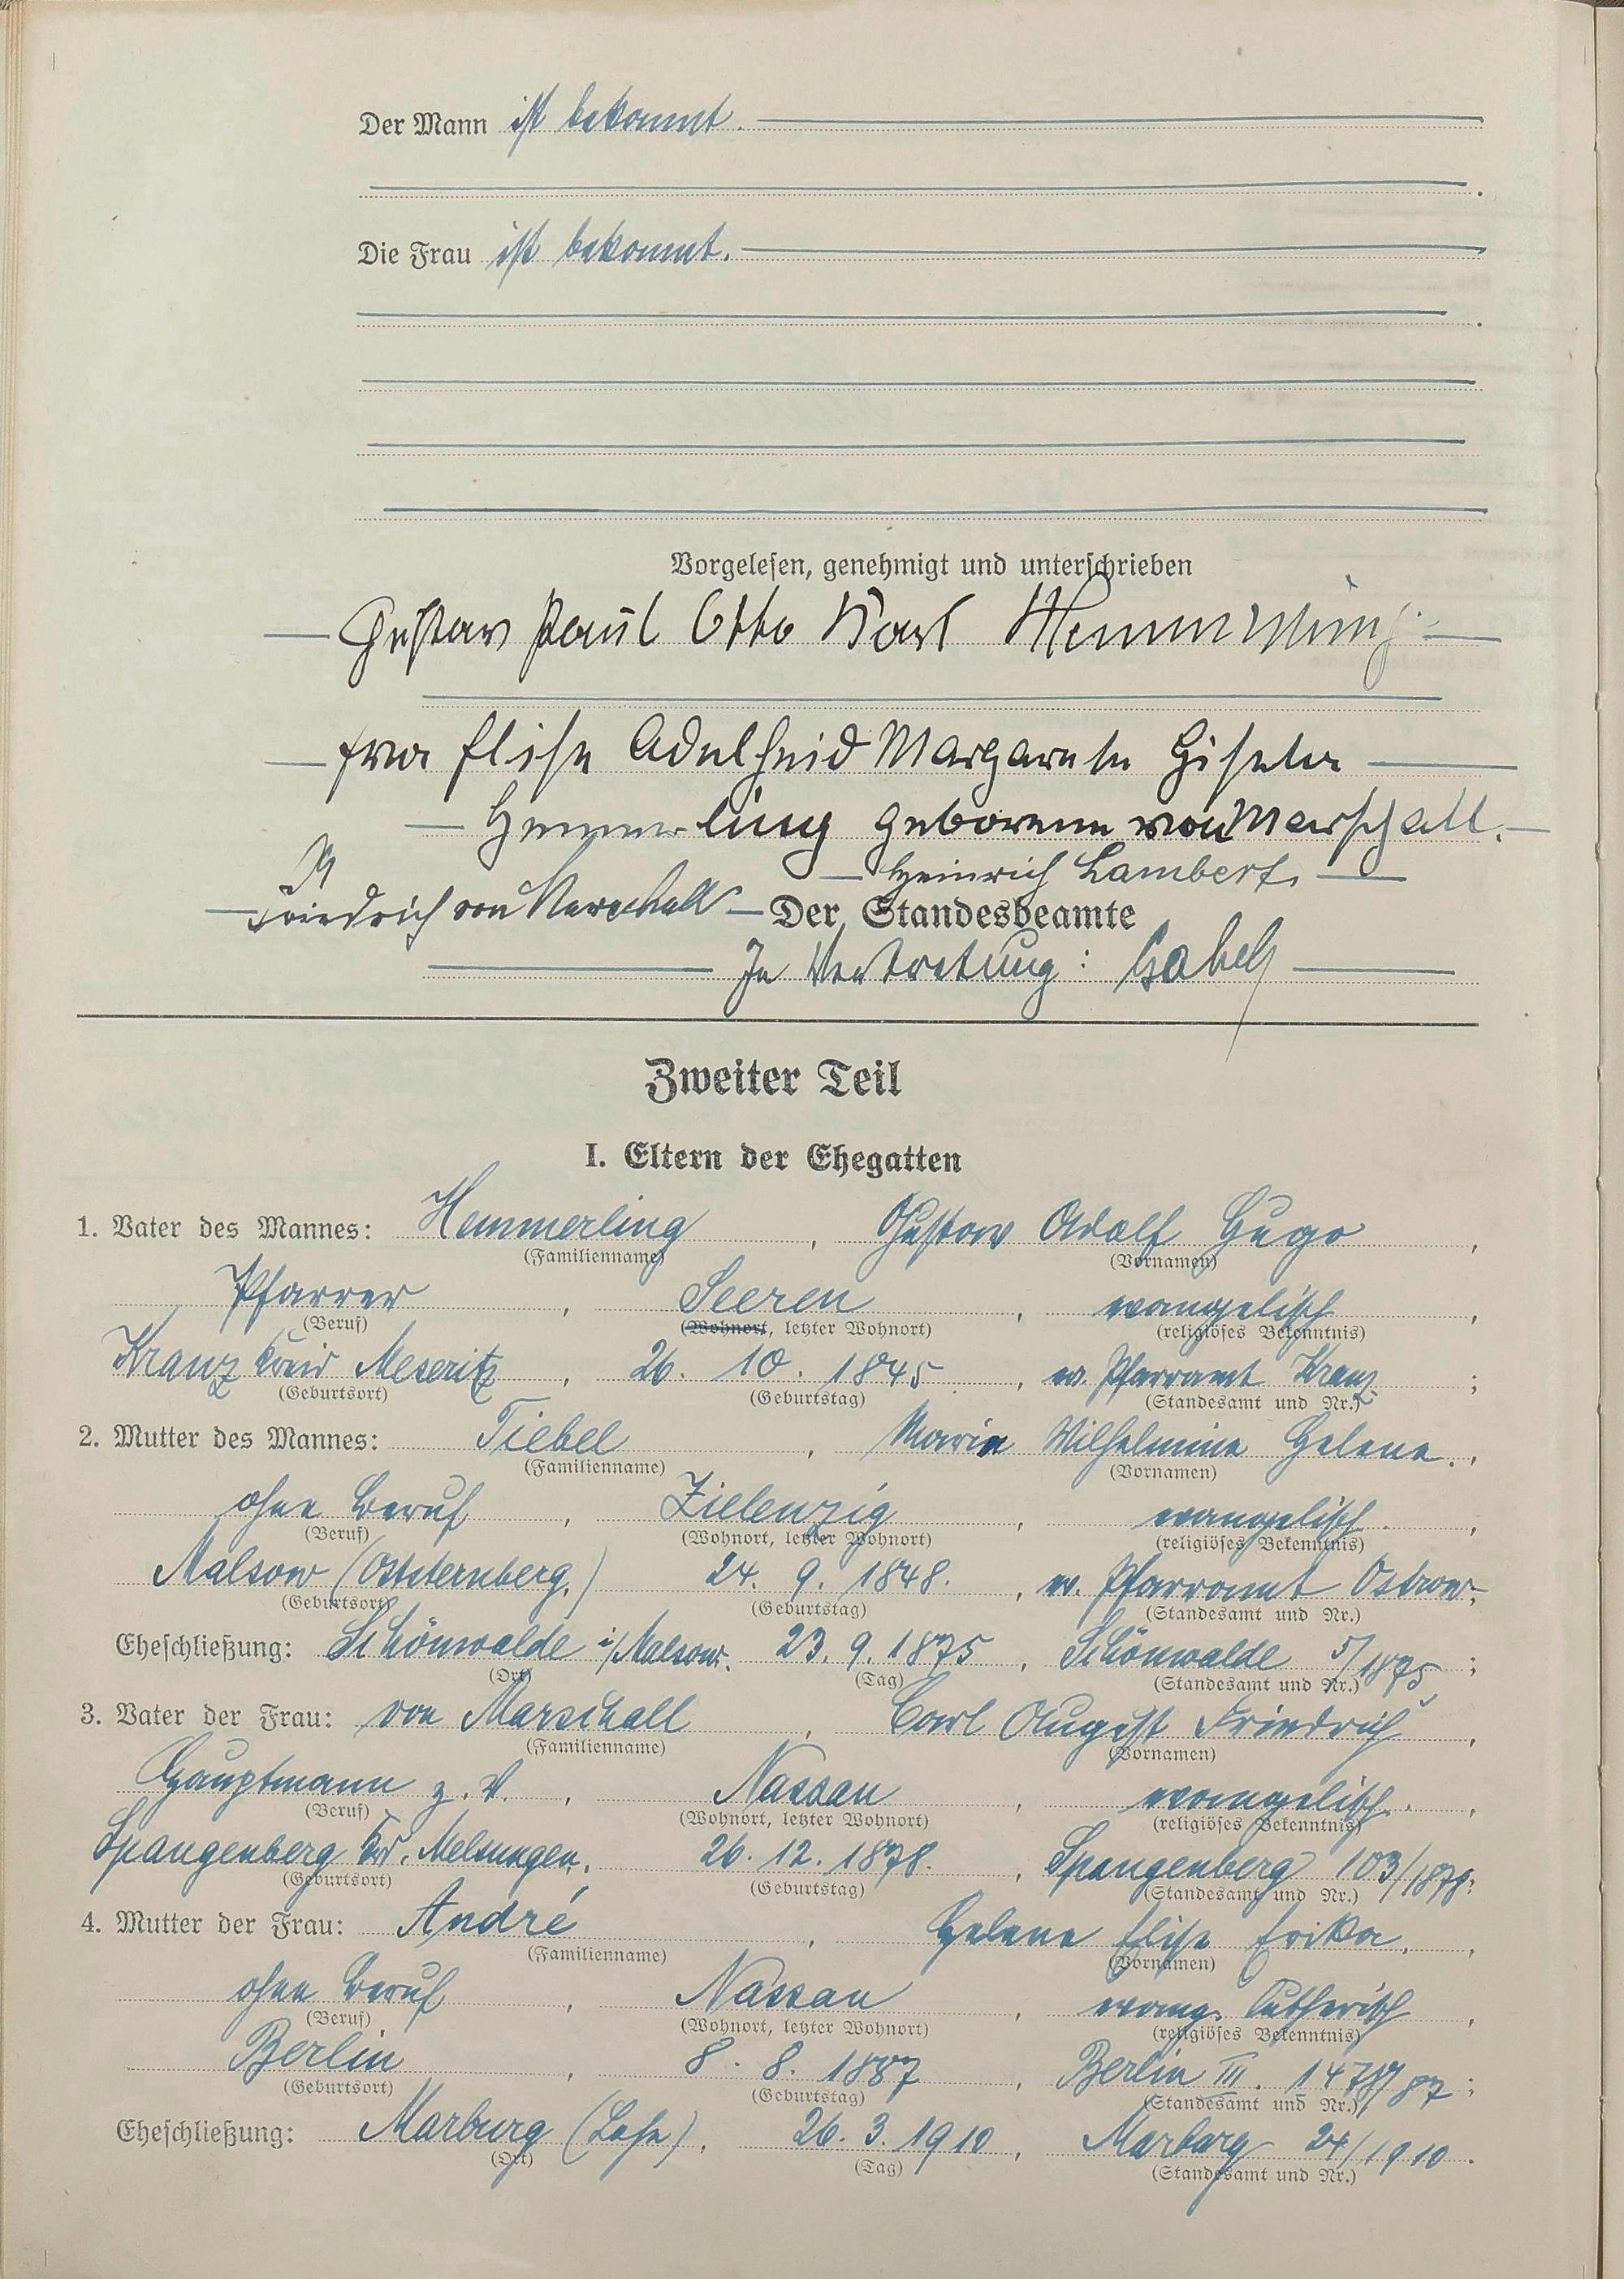 Der Mann ist bekannt.
Die Frau ist bekannt.
Vorgelesen, genehmigt und unterschrieben
Gustav Paul Otto Karl Hemmerling
Eva Elise Adelheid Margarete Gisela
Hemmerling geborene von Marschall.
Heinrich Lambert.
Friedrich von Marschall Der Standesbeamte
In Vertretung:
Zweiter Teil
I. Eltern der Ehegatten
1. Vater des Mannes: Hemmerling, Gustav Adolf Hugo,
(Familienname) (Vornamen)
Pfarrer, Seeren, evangelisch,
(Beruf) (Wohnort, letzter Wohnort) (religiöses Bekenntnis)
Kranz Kreis Meseritz, 26. 10. 1845, ev. Pfarramt Kranz;
(Geburtsort) (Geburtstag) (Standesamt und Nr.)
2. Mutter des Mannes: Tiebel, Marie Wilhelmine Helene.,
(Familienname) (Vornamen)
ohne Beruf, Zielenzig, evangelisch.,
(Beruf) (Wohnort, letzter Wohnort) (religiöses Bekenntnis)
Malsow (Oststernberg.) 24. 9. 1848., ev. Pfarramt Ostrow;
(Geburtsort) (Geburtstag) (Standesamt und Nr.)
Eheschließung: Schönwalde i/Malsow. 23. 9. 1875, Schönwalde 5/1875;
(Ort) (Tag) (Standesamt und Nr.)
3. Vater der Frau: von Marschall, Carl August Friedrich,
(Familienname) (Vornamen)
Hauptmann z. V., Nassau, evangelisch.,
(Beruf) (Wohnort, letzter Wohnort) (religiöses Bekenntnis)
Spangenberg Krs. Melsungen, 26. 12. 1878., Spangenberg 103/1878;
(Geburtsort) (Geburtstag) (Standesamt und Nr.)
4. Mutter der Frau: André, Helene Elise Erika.,
(Familienname) (Vornamen)
ohne Beruf, Nassau, evang. lutherisch,
(Beruf) (Wohnort, letzter Wohnort) (religiöses Bekenntnis)
Berlin, 8. 8. 1887, Berlin III. 1478/87;
(Geburtsort) (Geburtstag) (Standesamt und Nr.)
Eheschließung: Marburg (Lahn), 26. 3. 1910, Marburg 24/1910.
(Ort) (Tag) (Standesamt und Nr.)